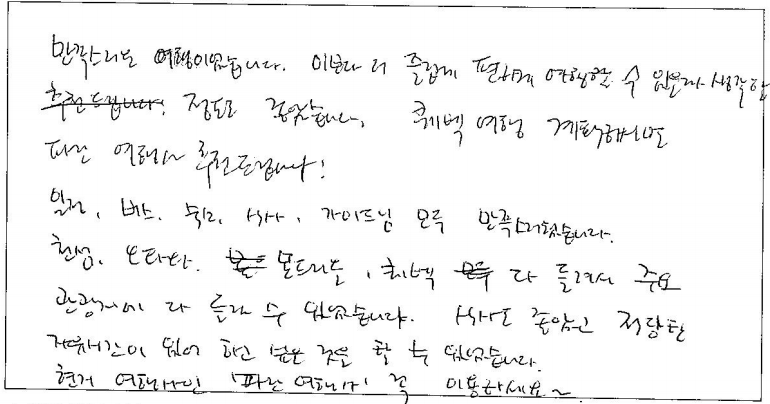 만족스러운 여행이었습니다. 이보다 더 즐겁게 편하게 여행할 수 있을까 생각할
추천드립니다. 정도로 좋았습니다. 퀘벡 여행 계획하시면
파란 여행사 추천드립니다!
일정, 버스, 숙소, 식사, 가이드님 모두 만족스러웠습니다.
천섬, 오타와, 몬트리올, 퀘벡 다 들려서 주요
관광지에 다 들릴 수 있었습니다. 식사도 좋았고 적당한
자유시간이 있어 하고 싶은 것을 할 수 있었습니다.
현지 여행사인 '파란 여행사' 꼭 이용하세요~